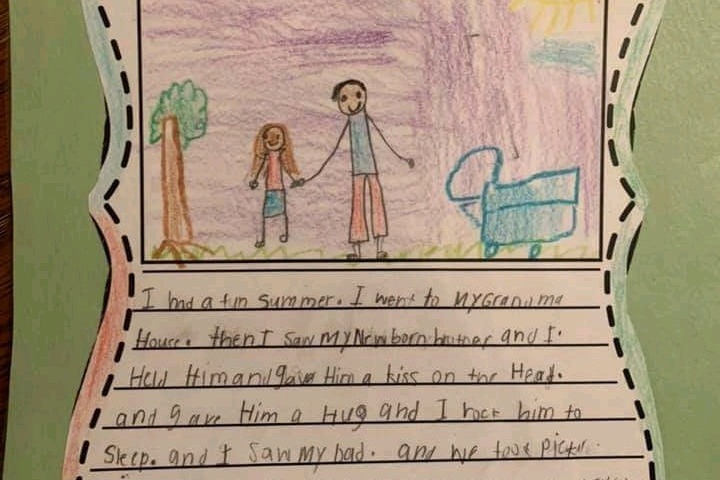 I had a fun summer. I went to MyGrandma
House. then I saw MyNewborn brother and I.
Held Him and gave Him a kiss on the Head.
and gave Him a Hug and I rock him to
Sleep. and I saw My Dad. and we took